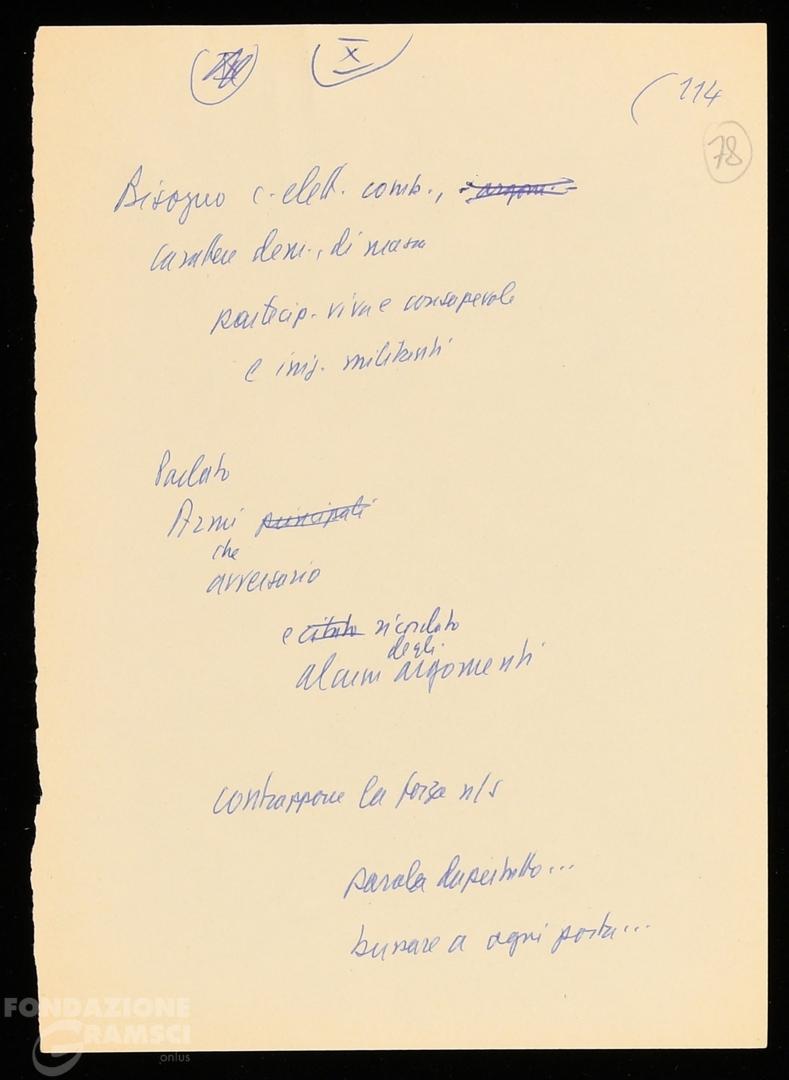 X
(114
78
Bisogno c. elett. comb.,
carattere dem., di massa
partecip. viva e consapevole
e iniz. militanti
Parlato
Armi principali
che
avversario
e citato ricordato
degli
alcuni argomenti
contrapporre la forza n/s
parola dapertutto...
bussare a ogni porta...
FONDAZIONE
GRAMSCI
onlus